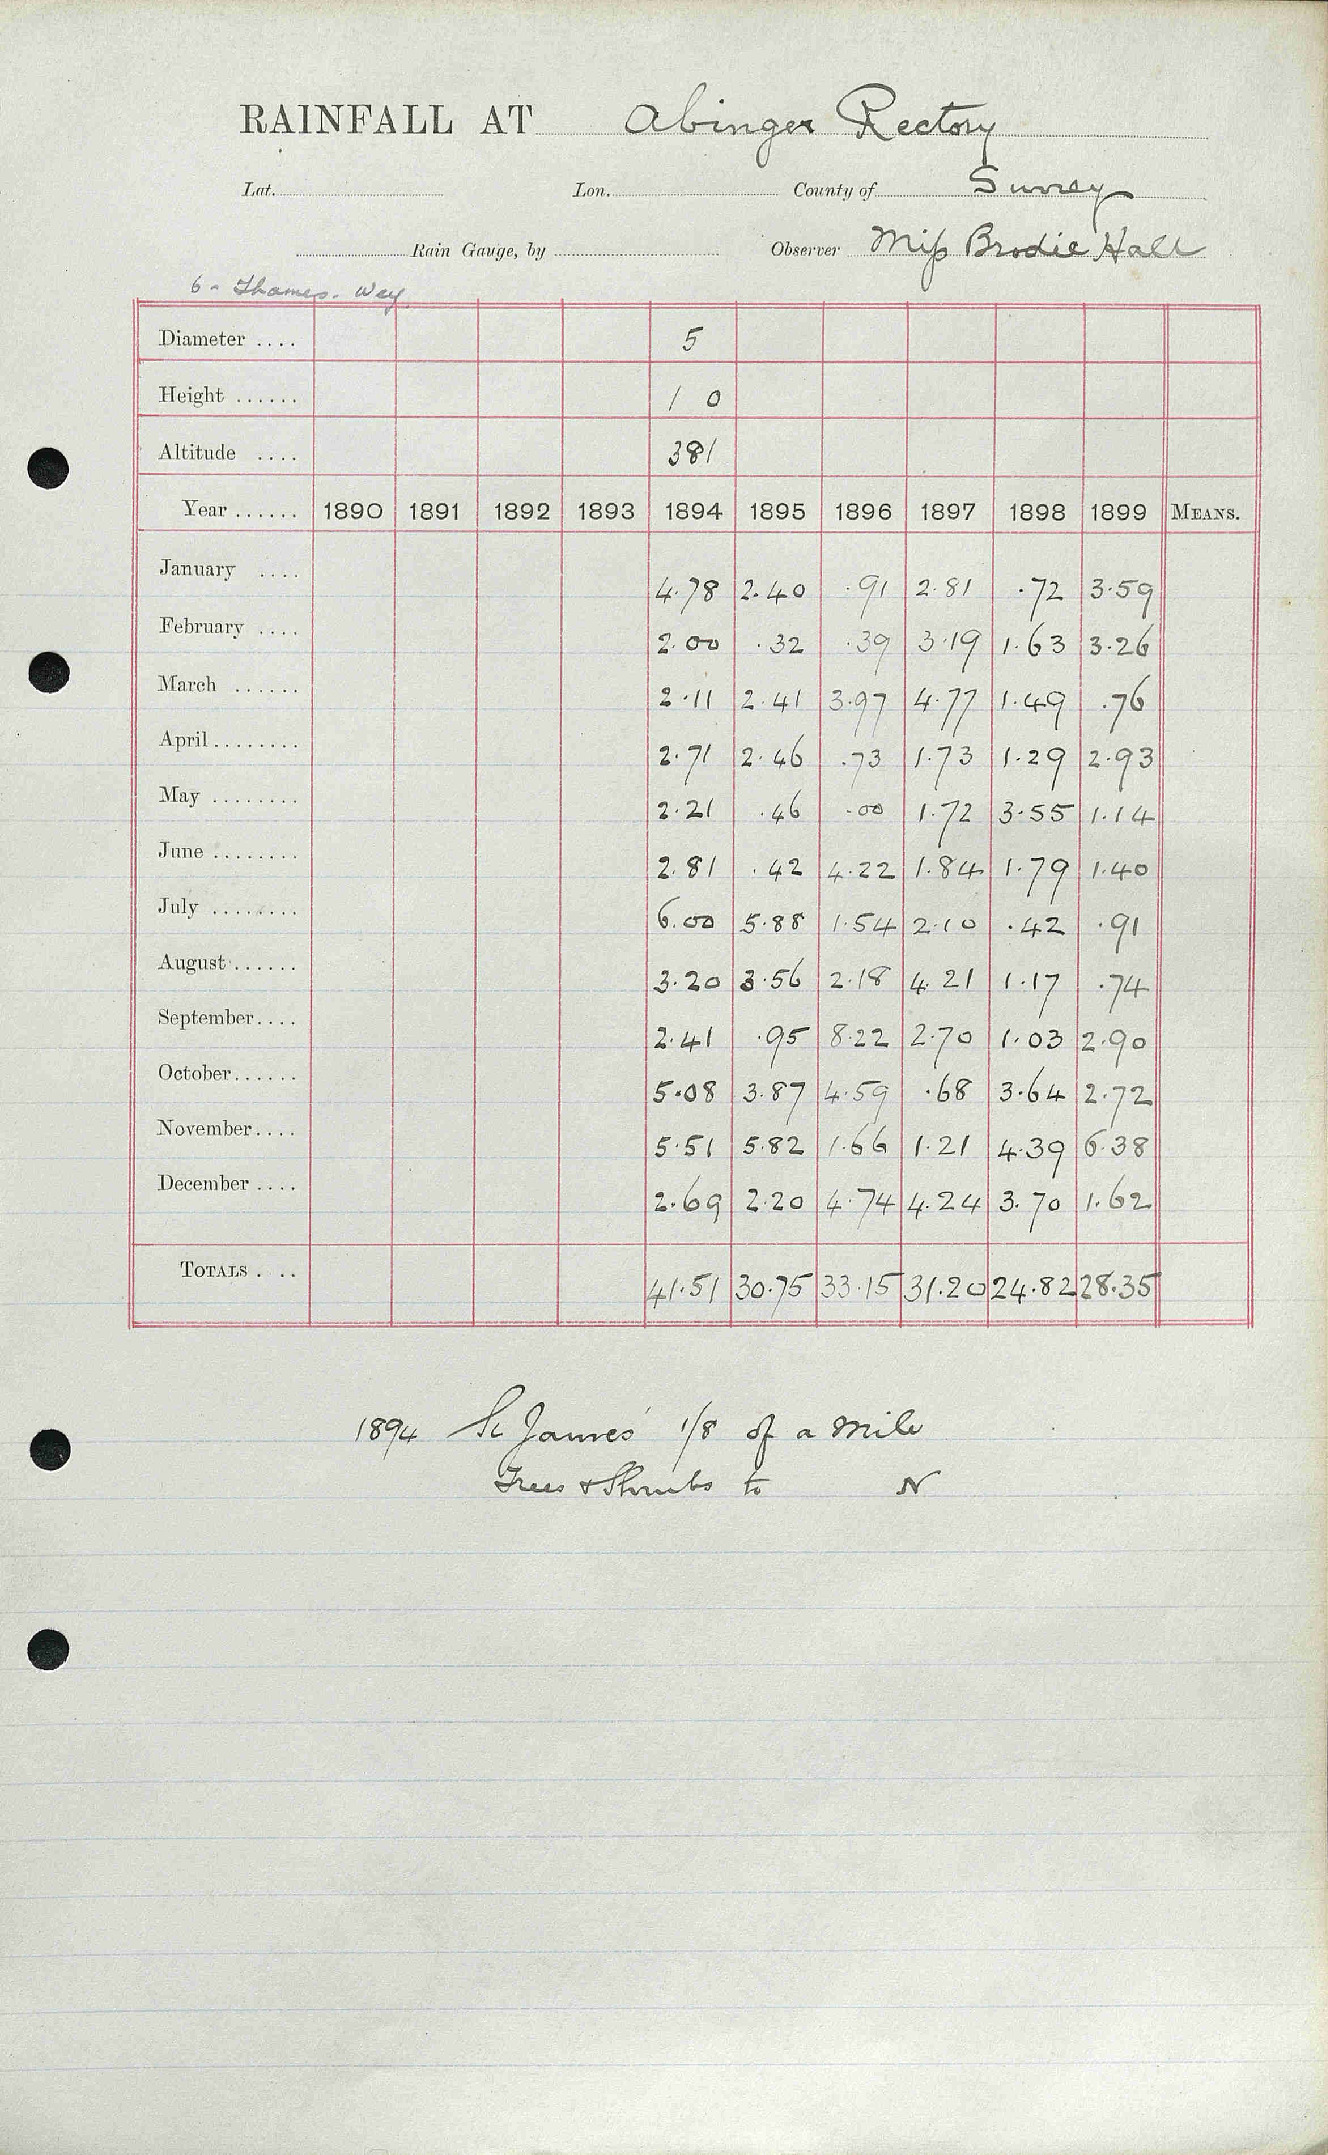 RAINFALL AT Abinger Rectory
Lat. Lon. County of Surrey
Rain Gauge, by Observer Miss Brodie Hall
6 - Thames - Wey
Diameter .... 5
Height ...... 1 0
Altitude .... 381
Year ...... 1890 1891 1892 1893 1894 1895 1896 1897 1898 1899 MEANS.
January .... 4.78 2.40 .91 2.81 .72 3.59
February .... 2.00 .32 .39 3.19 1.63 3.26
March ...... 2.11 2.41 3.97 4.77 1.49 .76
April ........ 2.71 2.46 .73 1.73 1.29 2.93
May ........ 2.21 .46 .00 1.72 3.55 1.14
June ........ 2.81 .42 4.22 1.84 1.79 1.40
July ........ 6.00 5.88 1.54 2.10 .42 .91
August ...... 3.20 3.56 2.18 4.21 1.17 .74
September .... 2.41 .95 8.22 2.70 1.03 2.90
October ...... 5.08 3.87 4.59 .68 3.64 2.72
November .... 5.51 5.82 1.66 1.21 4.39 6.38
December .... 2.69 2.20 4.74 4.24 3.70 1.62
TOTALS . .. 41.51 30.75 33.15 31.20 24.82 28.35
1894 St James' 1/8 of a Mile
Trees & Shrubs to N